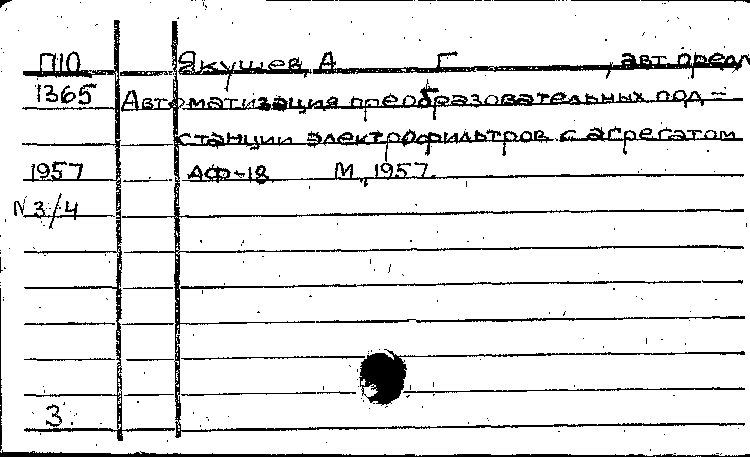 П10 Якушев, А Г , авт. предл
1365 Автоматизация преобразовательных под=
станции электрофильтров с агрегатом
1957 АФ-18 М., 1957.
N 3/4
3.